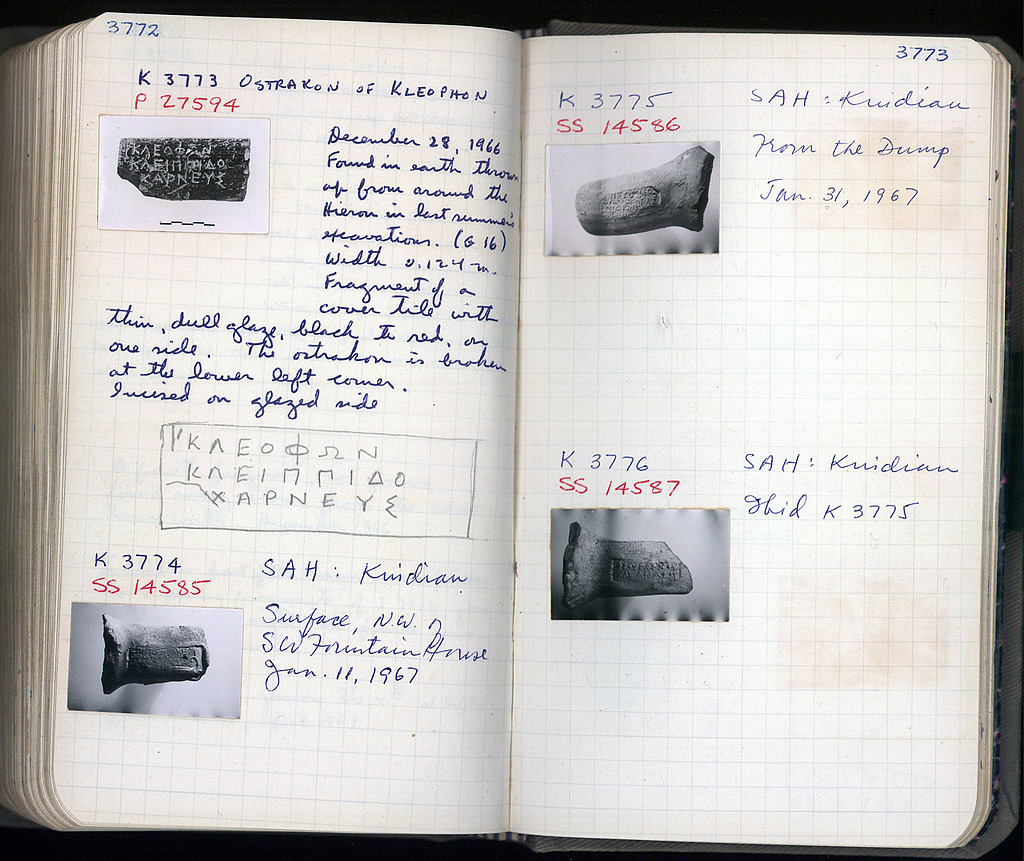 3772
K 3773 OSTRAKON OF KLEOPHON
P 27594
ΚΛΕΟΦΩΝ
ΚΛΕΙΠΠΙΔΟ
ΧΑΡΝΕΥΣ
December 28, 1966
Found in earth thrown
up from around the
Hieron in last summer's
excavations. (G 16)
Width 0.124 m.
Fragment of a
cover tile with
thin, dull glaze, black to red, on
one side. The ostrakon is broken
at the lower left corner.
Incised on glazed side
ΚΛΕΟΦΩΝ
ΚΛΕΙΠΠΙΔΟ
ΧΑΡΝΕΥΣ
K 3774
SS 14585
SAH: Knidian
Surface, NW. of
SW Fountain House
Jan. 11, 1967
3773
K 3775
SS 14586
SAH: Knidian
From the Dump
Jan. 31, 1967
K 3776
SS 14587
SAH: Knidian
Ibid K 3775